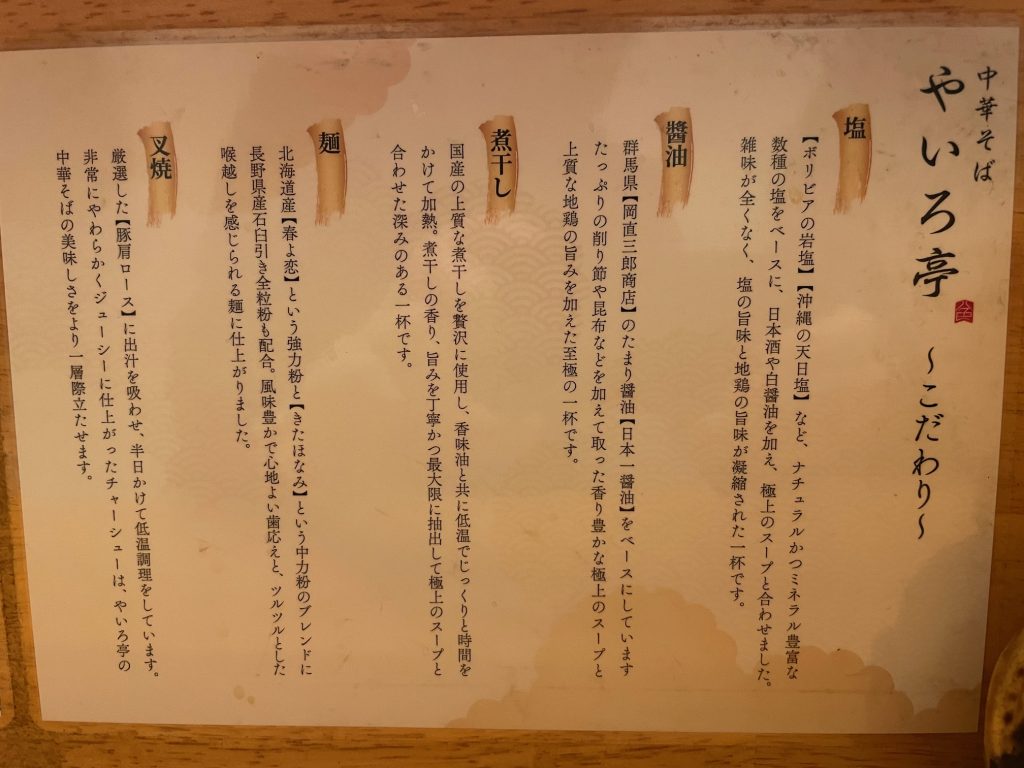 中華そば
やいろ亭 ～こだわり～
塩
【ボリビアの岩塩】【沖縄の天日塩】など、ナチュラルかつミネラル豊富な
数種の塩をベースに、日本酒や白醤油を加え、極上のスープと合わせました。
雑味が全くなく、塩の旨味と地鶏の旨味が凝縮された一杯です。
醬油
群馬県【岡直三郎商店】のたまり醤油【日本一醤油】をベースにしています
たっぷりの削り節や昆布などを加えて取った香り豊かな極上のスープと
上質な地鶏の旨みを加えた至極の一杯です。
煮干し
国産の上質な煮干しを贅沢に使用し、香味油と共に低温でじっくりと時間を
かけて加熱。煮干しの香り、旨みを丁寧かつ最大限に抽出して極上のスープと
合わせた深みのある一杯です。
麺
北海道産【春よ恋】という強力粉と【きたほなみ】という中力粉のブレンドに
長野県産石臼引き全粒粉も配合。風味豊かで心地よい歯応えと、ツルツルとした
喉越しを感じられる麺に仕上がりました。
叉焼
厳選した【豚肩ロース】に出汁を吸わせ、半日かけて低温調理をしています。
非常にやわらかくジューシーに仕上がったチャーシューは、やいろ亭の
中華そばの美味しさをより一層際立たせます。